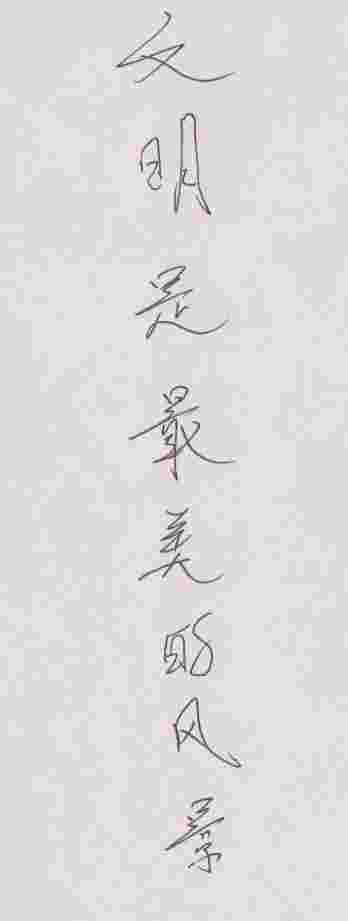 文明是最美的风景